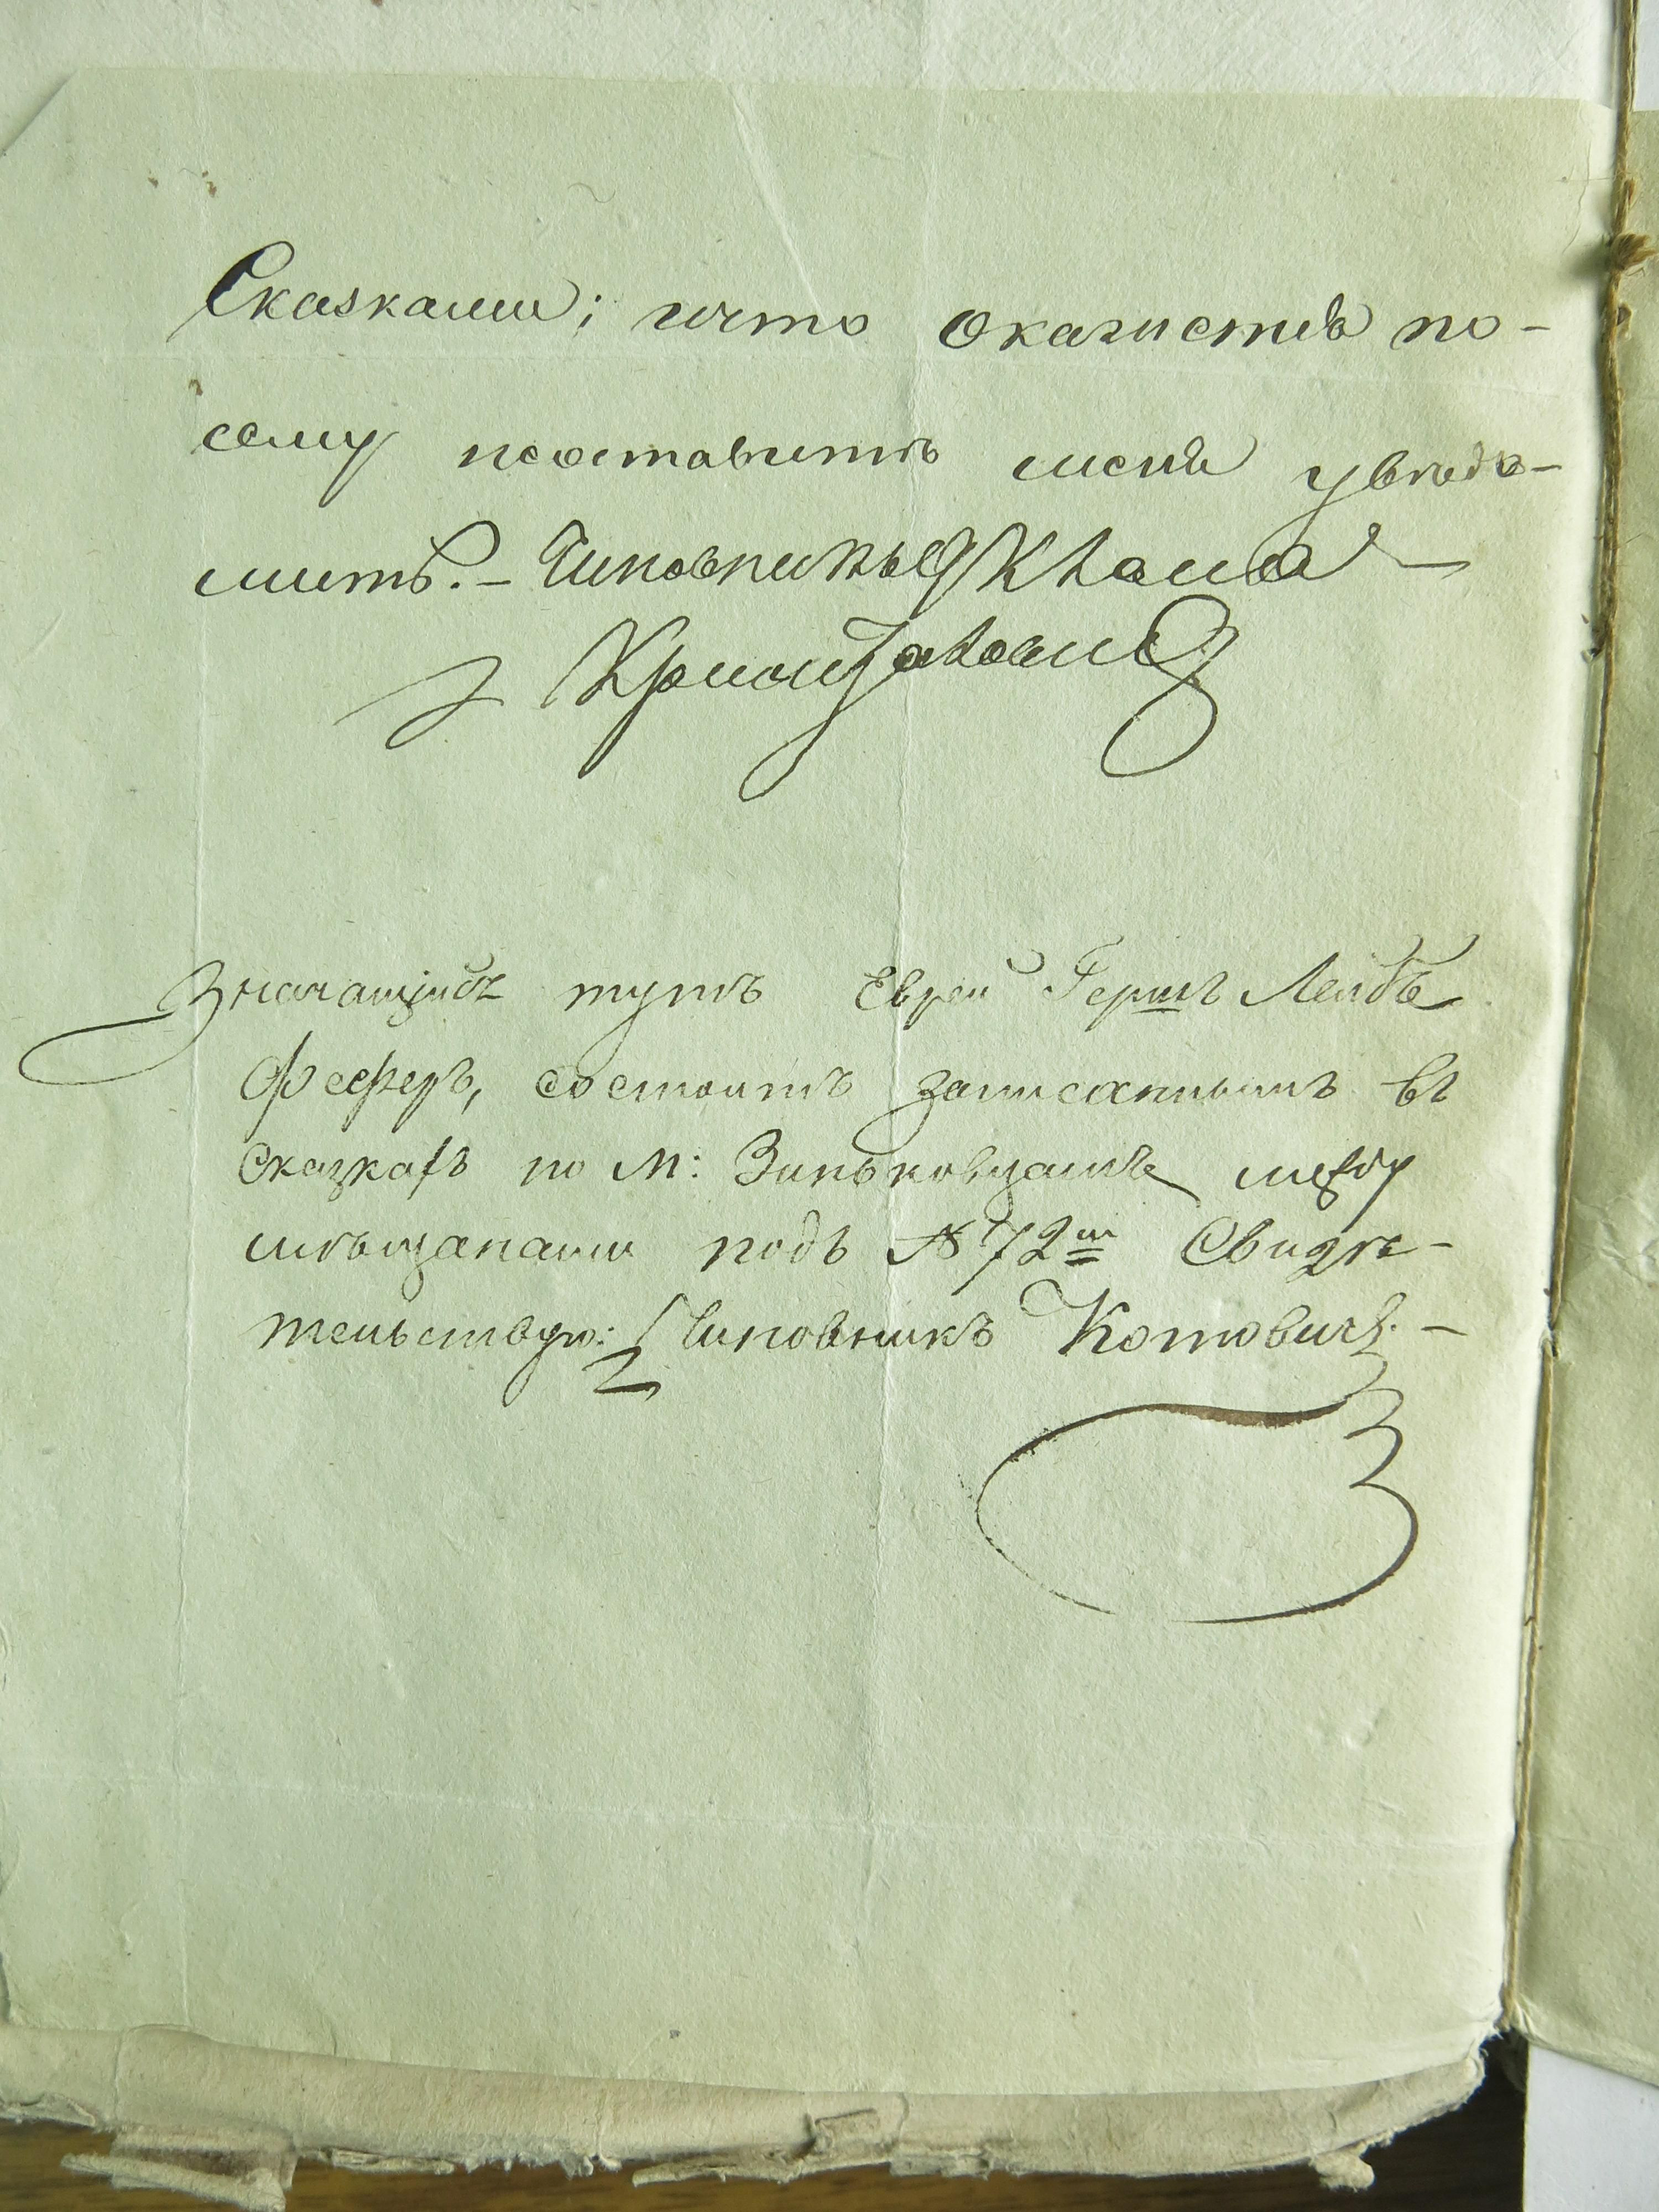 Сказками; что окажистся по-
сему неоставить меня уведо-
мить. – Чиновникъ 9 Класа
Значащійсь тутъ Еврей Гершъ Лейбъ
Феферъ, состоитъ записаннымъ въ
Сказкахъ по М: Зиньковцамъ между
мѣщанами подъ № 72м Свидѣ-
тельствую: Чиновникъ Котовичъ. –